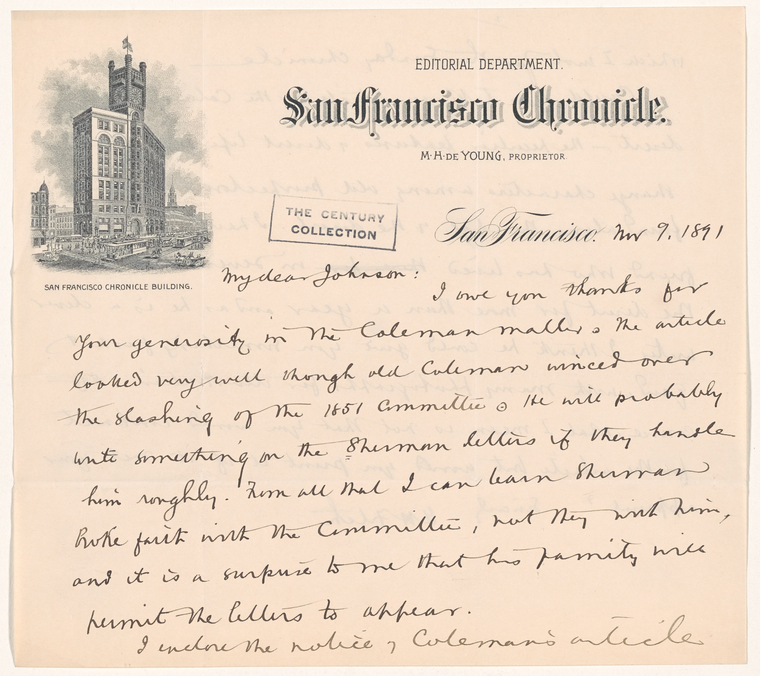 EDITORIAL DEPARTMENT.
San Francisco Chronicle.
M. H. DE YOUNG, PROPRIETOR
THE CENTURY
COLLECTION
San Francisco. Nov 9. 1891
SAN FRANCISCO CHRONICLE BUILDING.
My dear Johnson:
I owe you thanks for
your generosity in the Coleman matter. The article
looked very well though old Coleman winced over
the slashing of the 1851 Committee. He will probably
write something on the Sherman letters if they handle
him roughly. From all that I can learn Sherman
broke faith with the Committee, not they with him,
and it is a surprise to me that his family will
permit the letters to appear.
I enclose the notice of Coleman's article